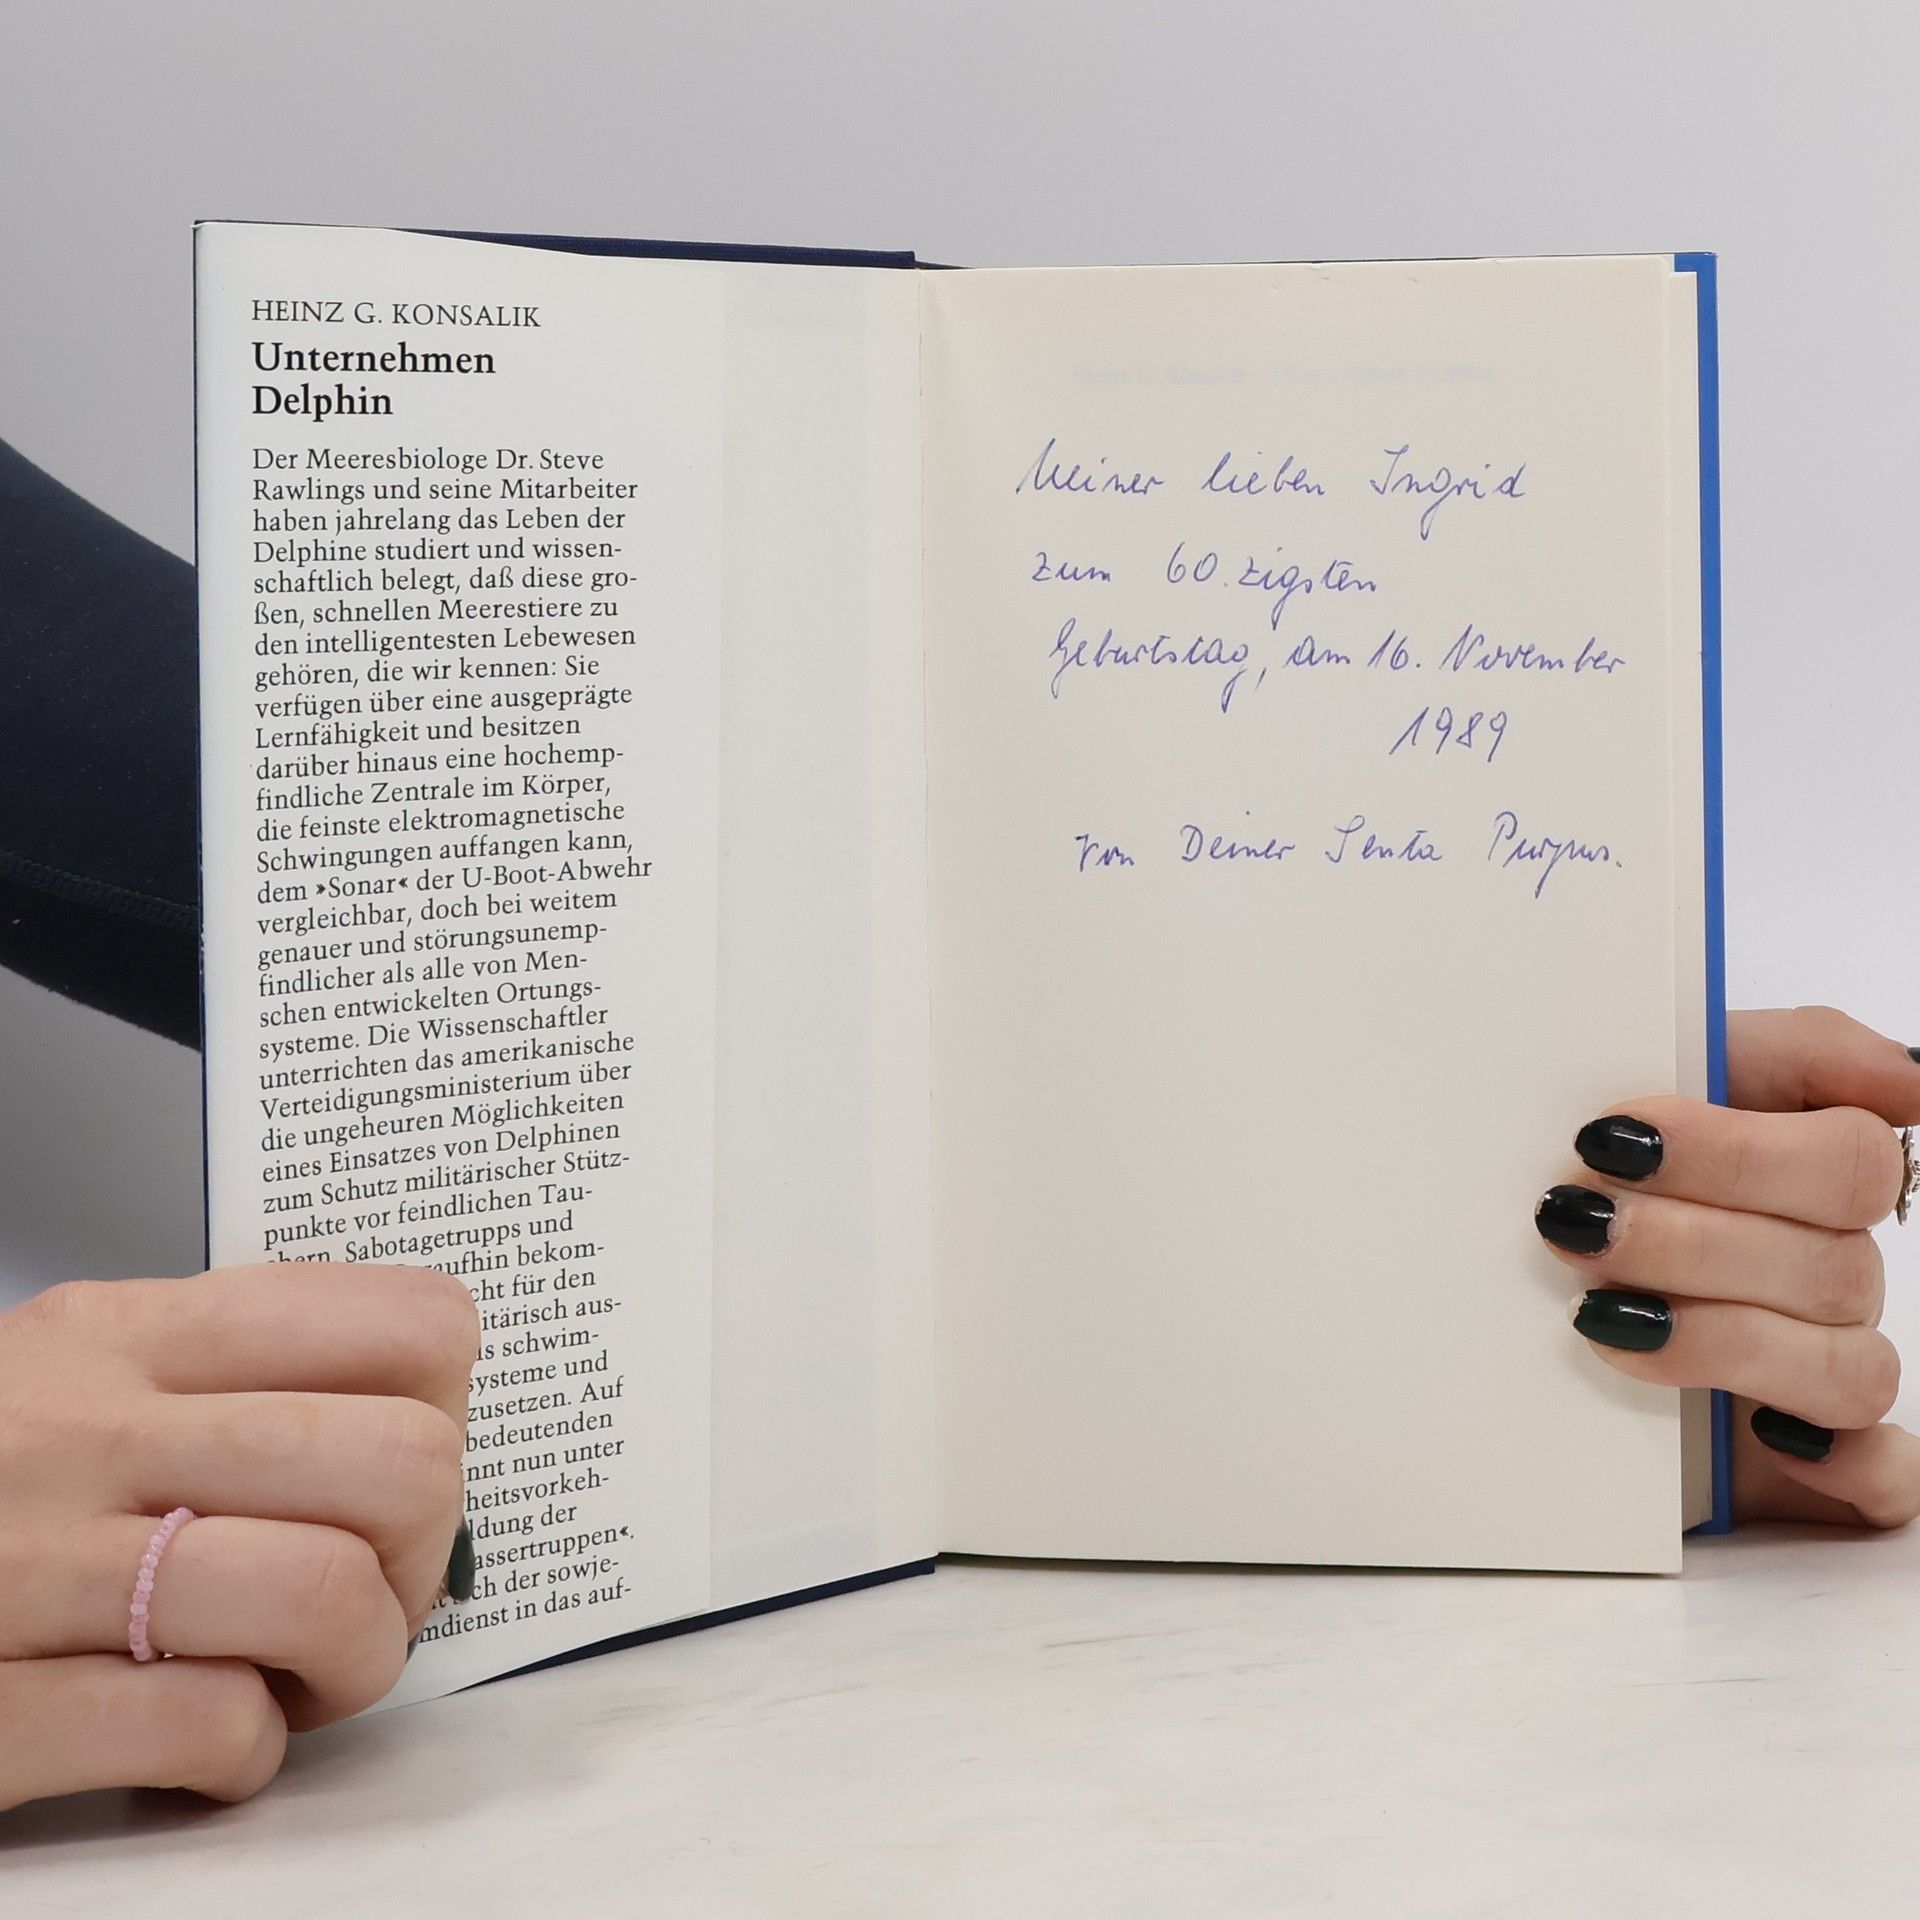 HEINZ G. KONSALIK
Unternehmen
Delphin
Der Meeresbiologe Dr. Steve
Rawlings und seine Mitarbeiter
haben jahrelang das Leben der
Delphine studiert und wissen-
schaftlich belegt, daß diese gro-
ßen, schnellen Meerestiere zu
den intelligentesten Lebewesen
gehören, die wir kennen: Sie
verfügen über eine ausgeprägte
Lernfähigkeit und besitzen
darüber hinaus eine hochemp-
findliche Zentrale im Körper,
die feinste elektromagnetische
Schwingungen auffangen kann,
dem »Sonar« der U-Boot-Abwehr
vergleichbar, doch bei weitem
genauer und störungsunemp-
findlicher als alle von Men-
schen entwickelten Ortungs-
systeme. Die Wissenschaftler
unterrichten das amerikanische
Verteidigungsministerium über
die ungeheuren Möglichkeiten
eines Einsatzes von Delphinen
zum Schutz militärischer Stütz-
punkte vor feindlichen Tau-
chern, Sabotagetrupps und
bekom-
für den
aus-
schwim-
systeme und
zusetzen. Auf
bedeutenden
nun unter
der
der sowje-
in das auf-
Meiner lieben Ingrid
zum 60.zigsten
Geburtstag, am 16. November
1989
von Deiner Senta Purpus.